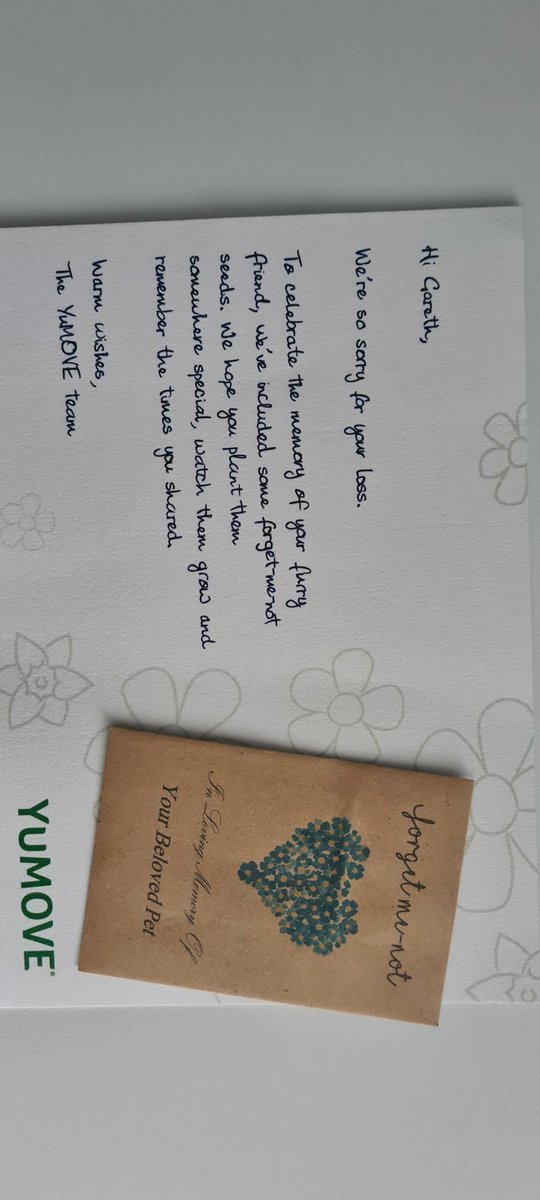 Hi Gareth,
We're so sorry for your loss.
To celebrate the memory of your furry
friend, we've included some forget-me-not
seeds. We hope you plant them
somewhere special, watch them grow and
remember the times you shared.
Warm wishes,
The YuMOVE team
forget me-not
In Loving Memory Of
Your Beloved Pet
YUMOVE®